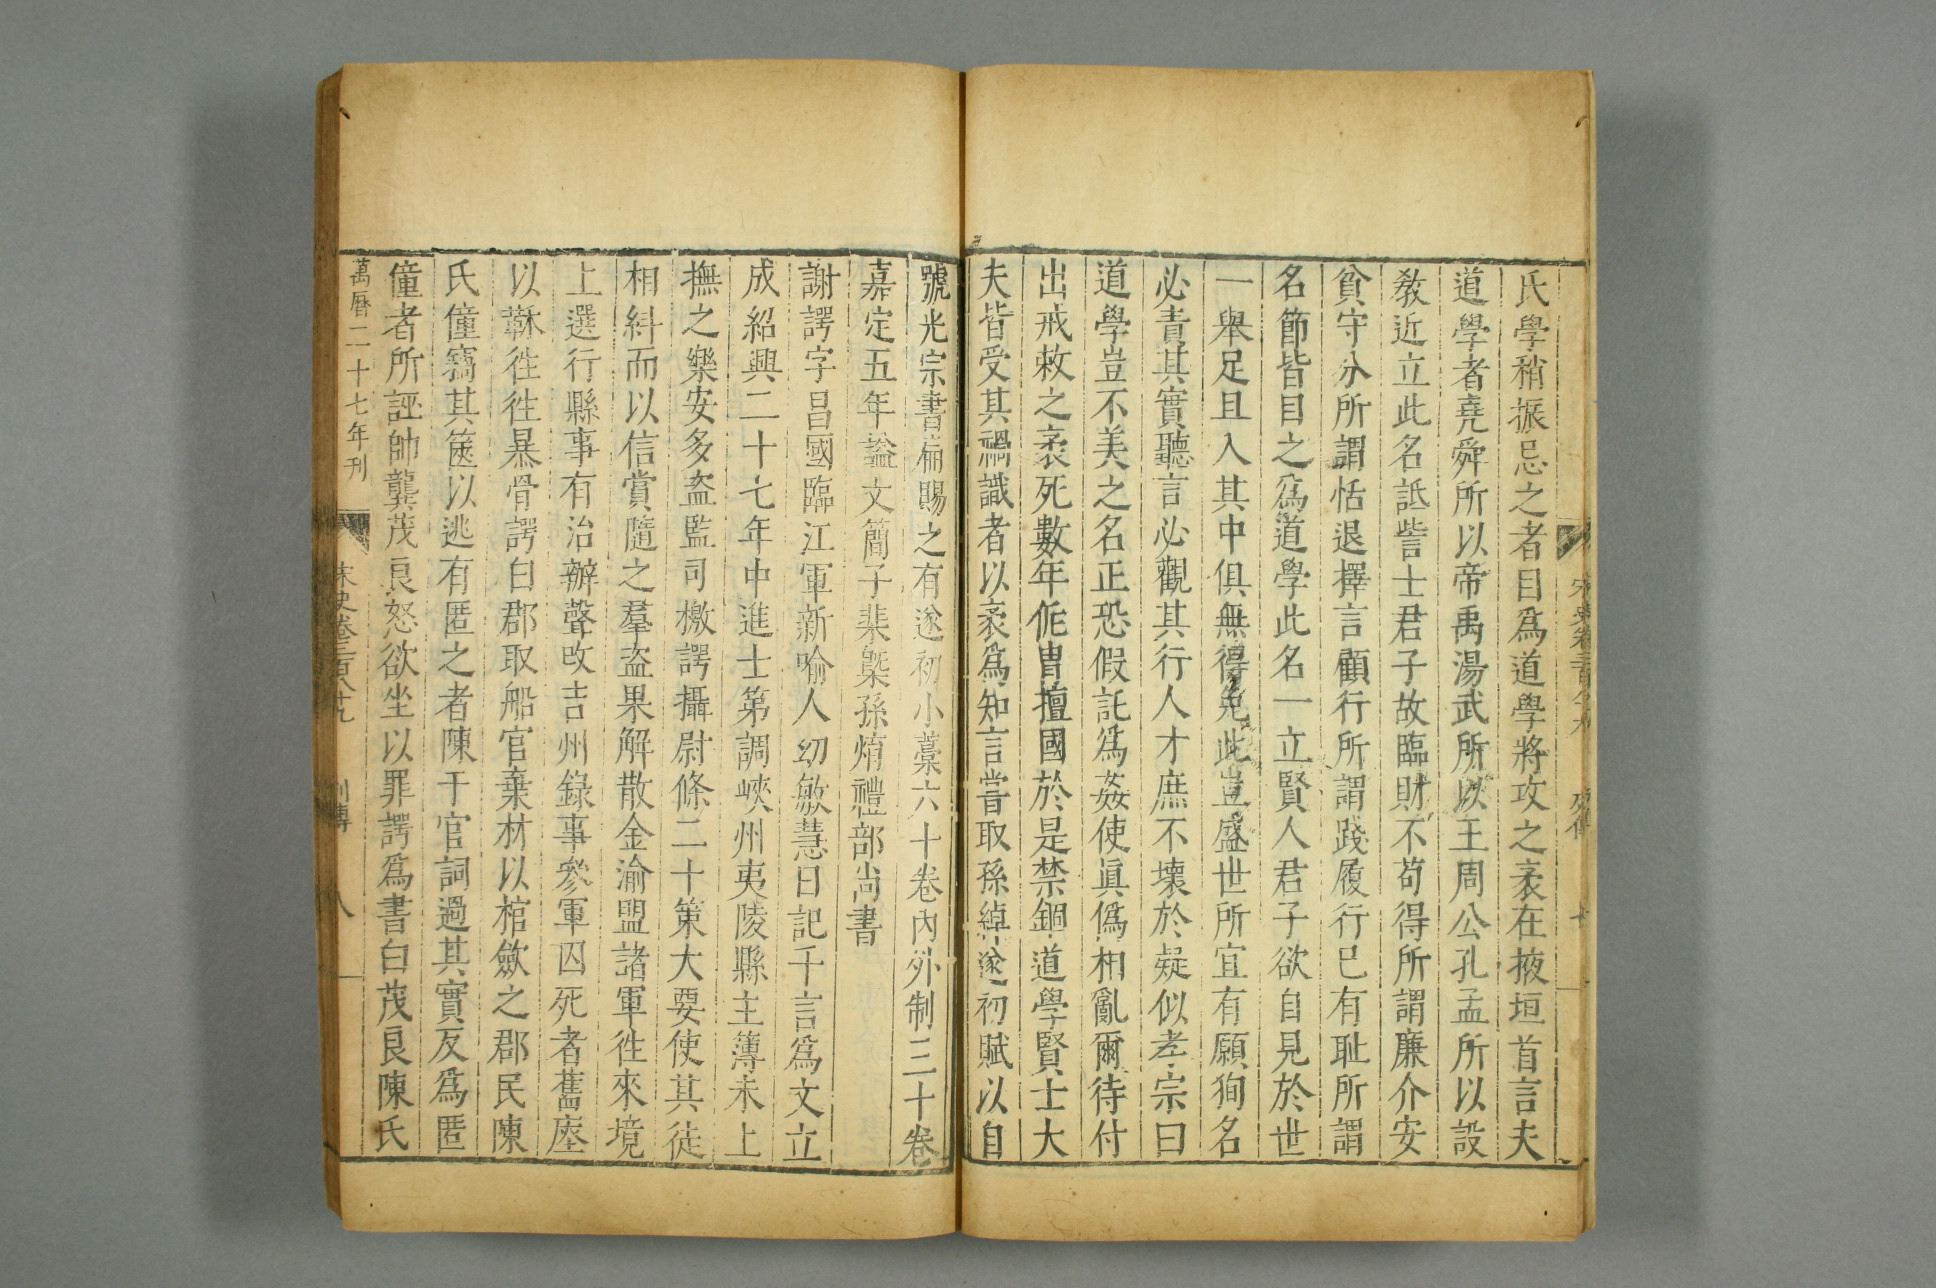 氏學稍振忌之者目爲道學將攻之袤在掖垣首言夫
道學者堯舜所以帝禹湯武所以王周公孔孟所以設
敎近立此名詆訾士君子故臨財不苟得所謂廉介安
貧守分所謂恬退擇言顧行所謂踐履行巳有耻所謂
名節皆目之爲道學此名一立賢人君子欲自見於世
一舉足且入其中俱無得免此豈盛世所宜有願狥名
必責其實聽言必觀其行人才庶不壞於疑似孝宗曰
道學豈不美之名正恐假託爲姦使眞僞相亂爾待付
出戒敕之袤死數年侂胄擅國於是禁錮道學賢士大
夫皆受其禍識者以袤爲知言嘗取孫綽遂初賦以自
宋史卷三百八十九 列傳 七
號光宗書扁賜之有遂初小藁六十卷內外制三十卷
嘉定五年諡文簡子棐槩孫焴禮部尚書
謝諤字昌國臨江軍新喻人幼敏慧日記千言爲文立
成紹興二十七年中進士第調峽州夷陵縣主簿未上
撫之樂安多盗監司檄諤攝尉條二十策大要使其徒
相糾而以信賞隨之羣盗果解散金渝盟諸軍徃來境
上選行縣事有治辦聲改吉州錄事參軍囚死者舊瘞
以蓻徃徃暴骨諤白郡取船官棄材以棺斂之郡民陳
氏僮竊其篋以逃有匿之者陳于官詞過其實反爲匿
僮者所誣帥龔茂良怒欲坐以罪諤爲書白茂良陳氏
萬曆二十七年刊
宋史卷三百八十九 列傳 八